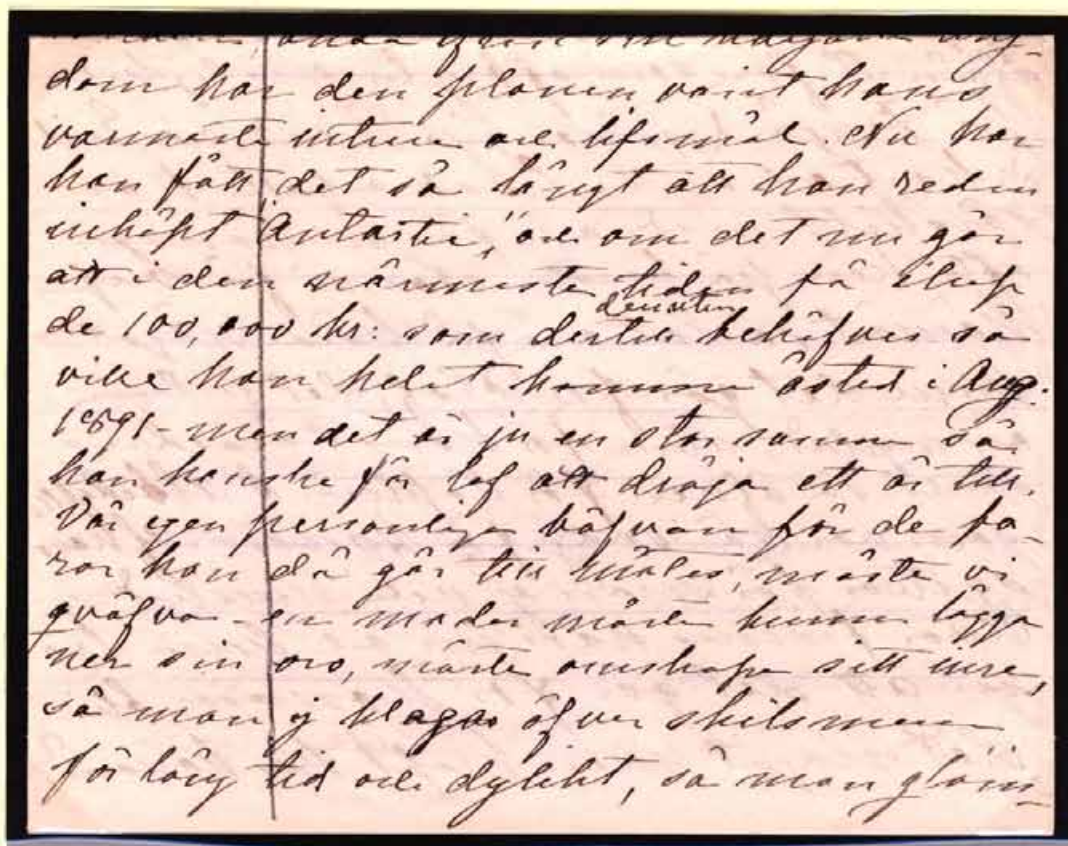 ända ifrån sin
dom har den planen varit hans
varmaste intresse och lifsmål. Nu har
han fått det så långt att han redan
inköpt "Antarctic," och om det nu går
att i den närmaste tiden få ihop
de 100,000 kr: som dertill dessutom behöfves så
ville han helst komma åsted i Aug.
1891 - men det är ju en stor summa så
han kanske får lof att dröja ett år till.
Vår egen personliga bäfvan för de fa-
ror han då går till mötes, måste vi
qväfva - en moder måste kunna lägga
ner sin oro, måste omskapa sitt inre,
så man ej klagar öfver skilsmessa
för lång tid och dylikt, så man glöm-